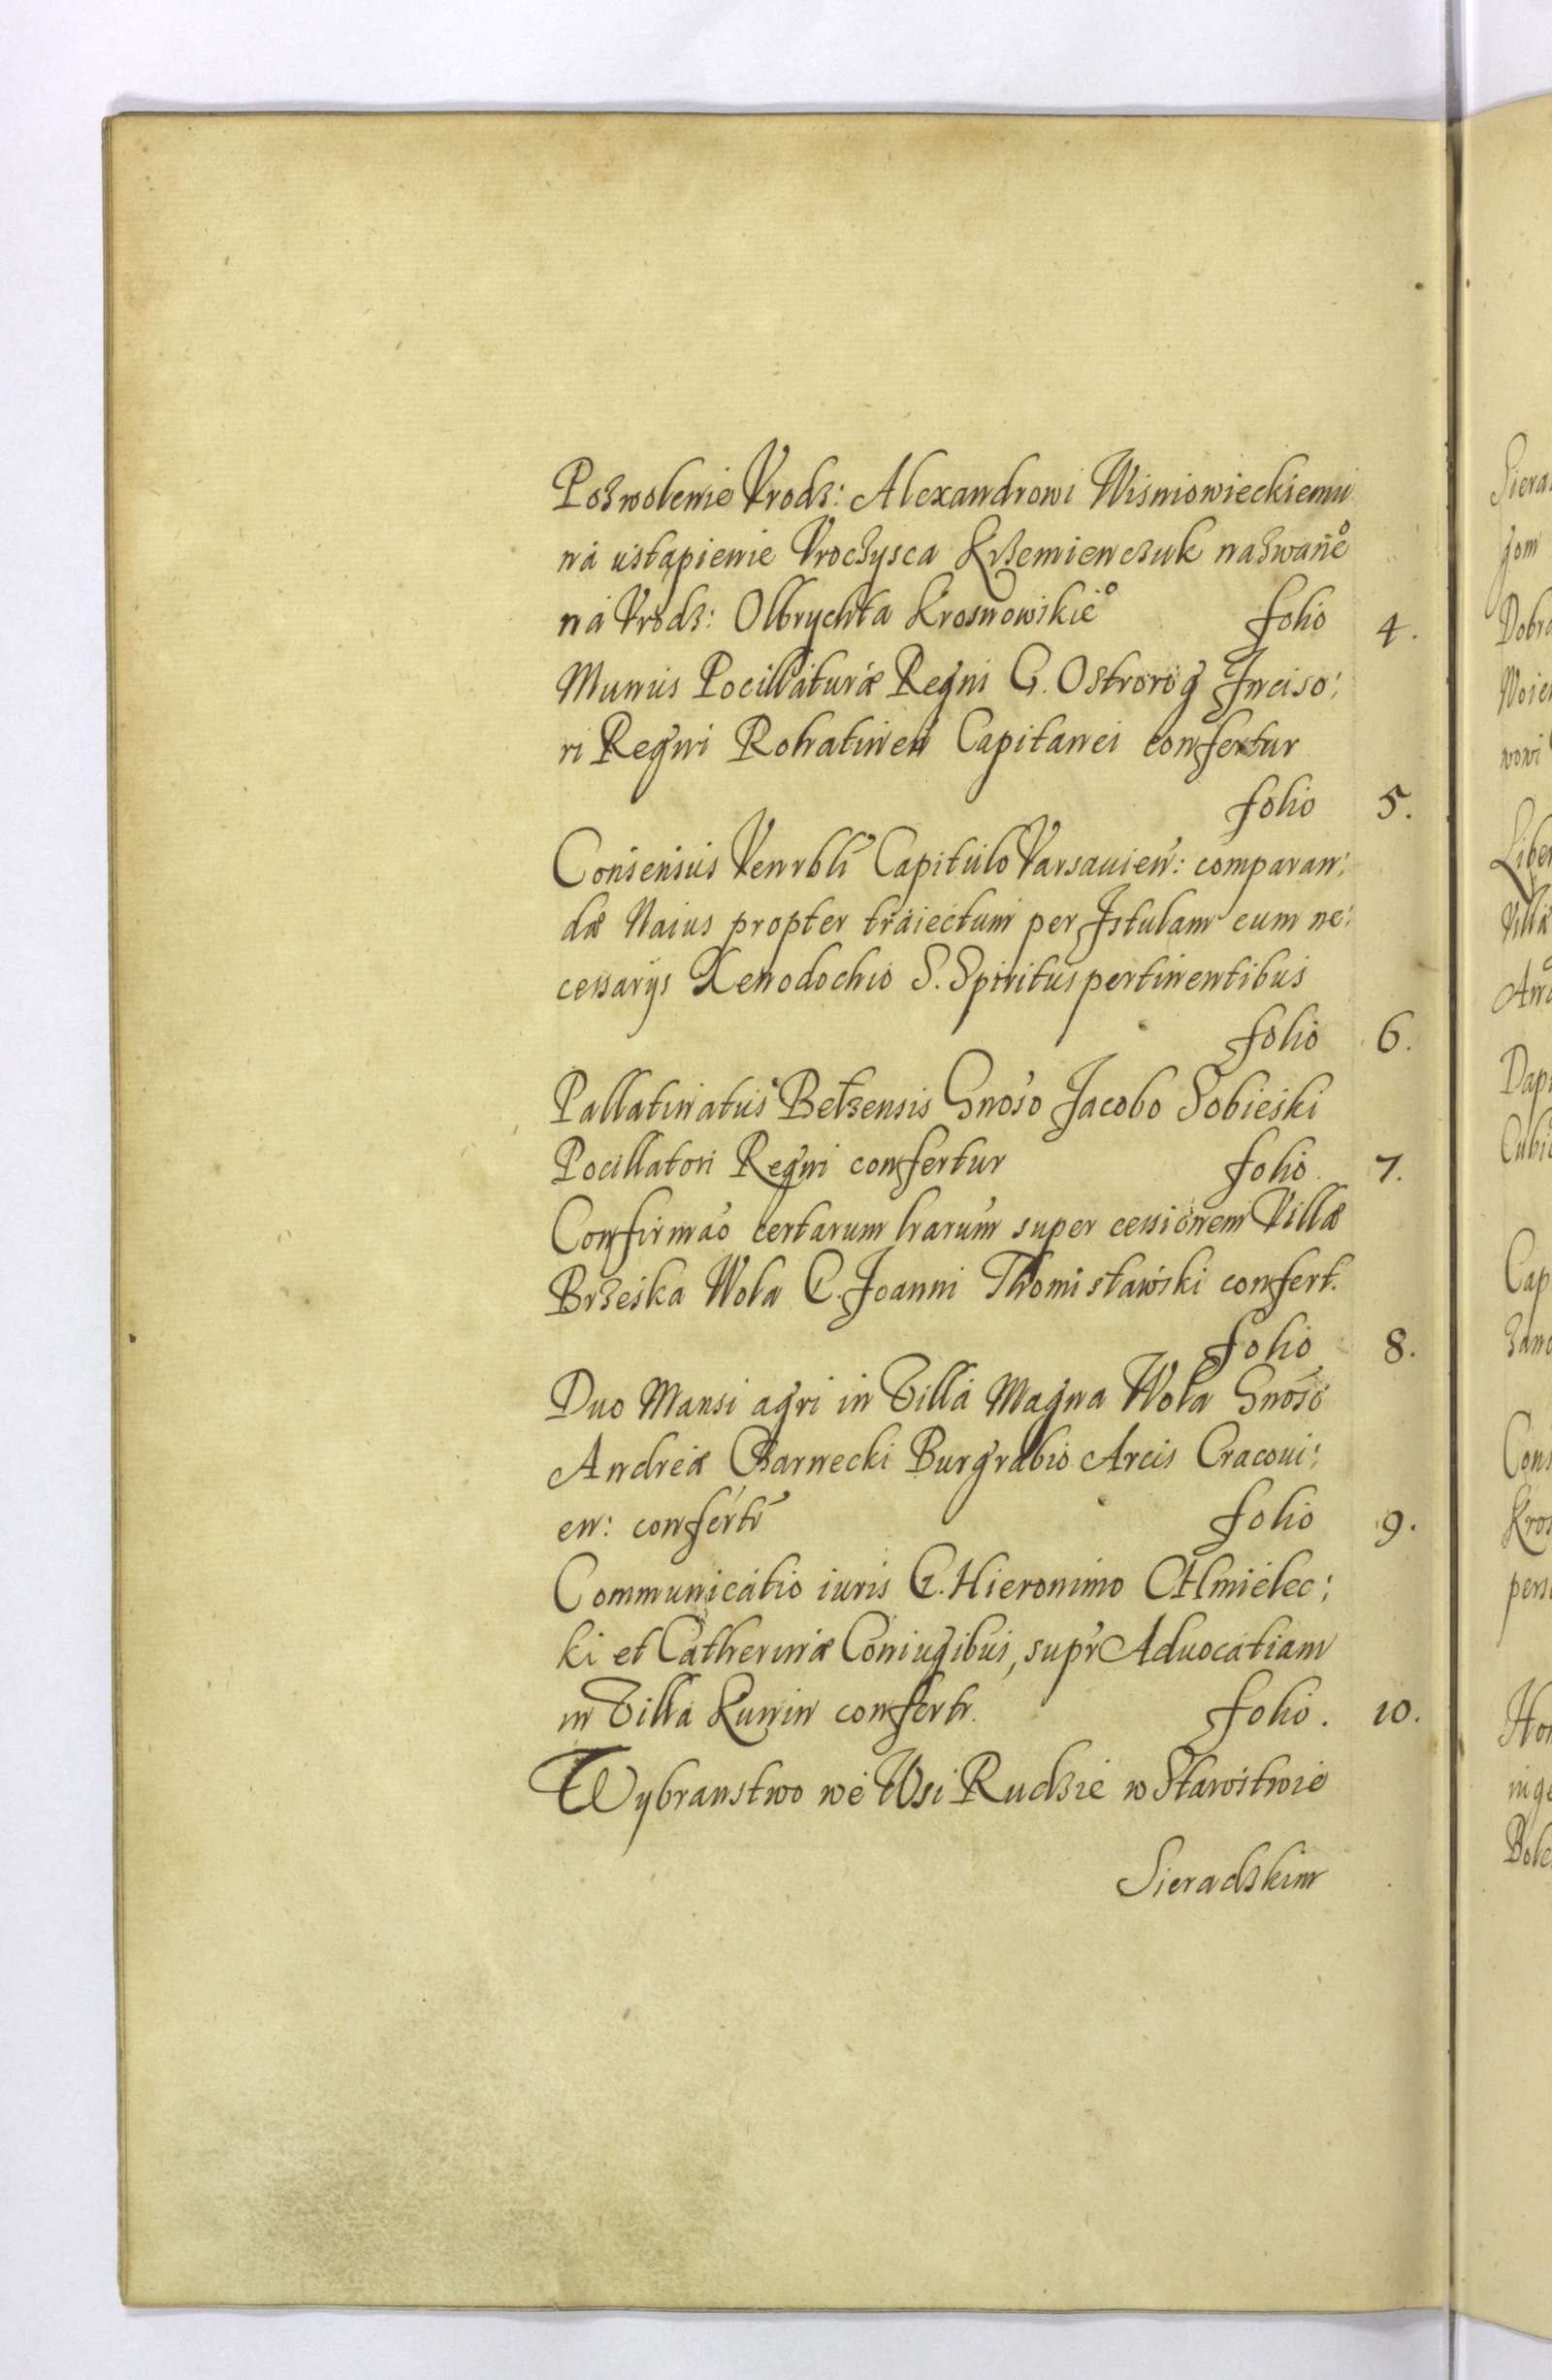 Pozwolenie Vrodz: Alexandrowi Wisniowieckiemu
ná ustąpienie Vroczysca Krzemienczuk nazwane͠o
ná Vrodz: Olbrychta Krosnowskie͠o folio 4.
Munus Pocillaturæ Regni G. Ostrorog Inciso:
ri Regni Rohatinen Capitanei confertur
folio 5.
Consensus Venrbli Capitulo Varsauien: comparan:
dæ Nauis propter traiectum per Istulam cum ne:
cessarijs Xenodochio S. Spiritus pertinentibus
folio 6.
Pallatinatus Belzensis Gnoso Jacobo Sobieski
Pocillatori Regni confertur folio 7.
Confirmao certarum lrarum super cessionem Villæ
Brzeska Wola G. Joanni Thomisławski confert.
folio 8.
Duo Mansi agri in Villa Magna Wola Gnoso
Andreæ Czarnecki Burgrabio Arcis Cracoui:
en: confertr folio 9.
Communicatio iuris G. Hieronimo Chmielec:
ki et Catherinæ Coniugibus, supr Aduocatiam
in Villa Kunin confertr. folio. 10.
Wybranstwo we Wsi Rudzie w Starostwie
Sieradzkim
Siera
gom
Dobra
Woie
nowi
Liber
Villæ
And
Dapi
Cubi
Cap
zand
Cons
Kros
pers
Hon
inge
Bole